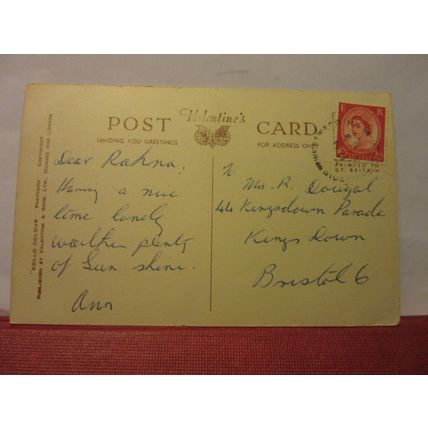 Valentine's
POST CARD
SENDING YOU GREETINGS
FOR ADDRESS ONLY
E R
PRINTED IN
GT. BRITAIN
Dear Rahna.
Having a nice
time lovely
weather plenty
of Sun shine.
Ann
To
Mrs. R. Dougal
44 Kingsdown Parade
Kings Down
Bristol 6
"COLLO COLOUR" POSTCARD COPYRIGHT
PUBLISHED BY VALENTINE & SONS, LTD., DUNDEE AND LONDON